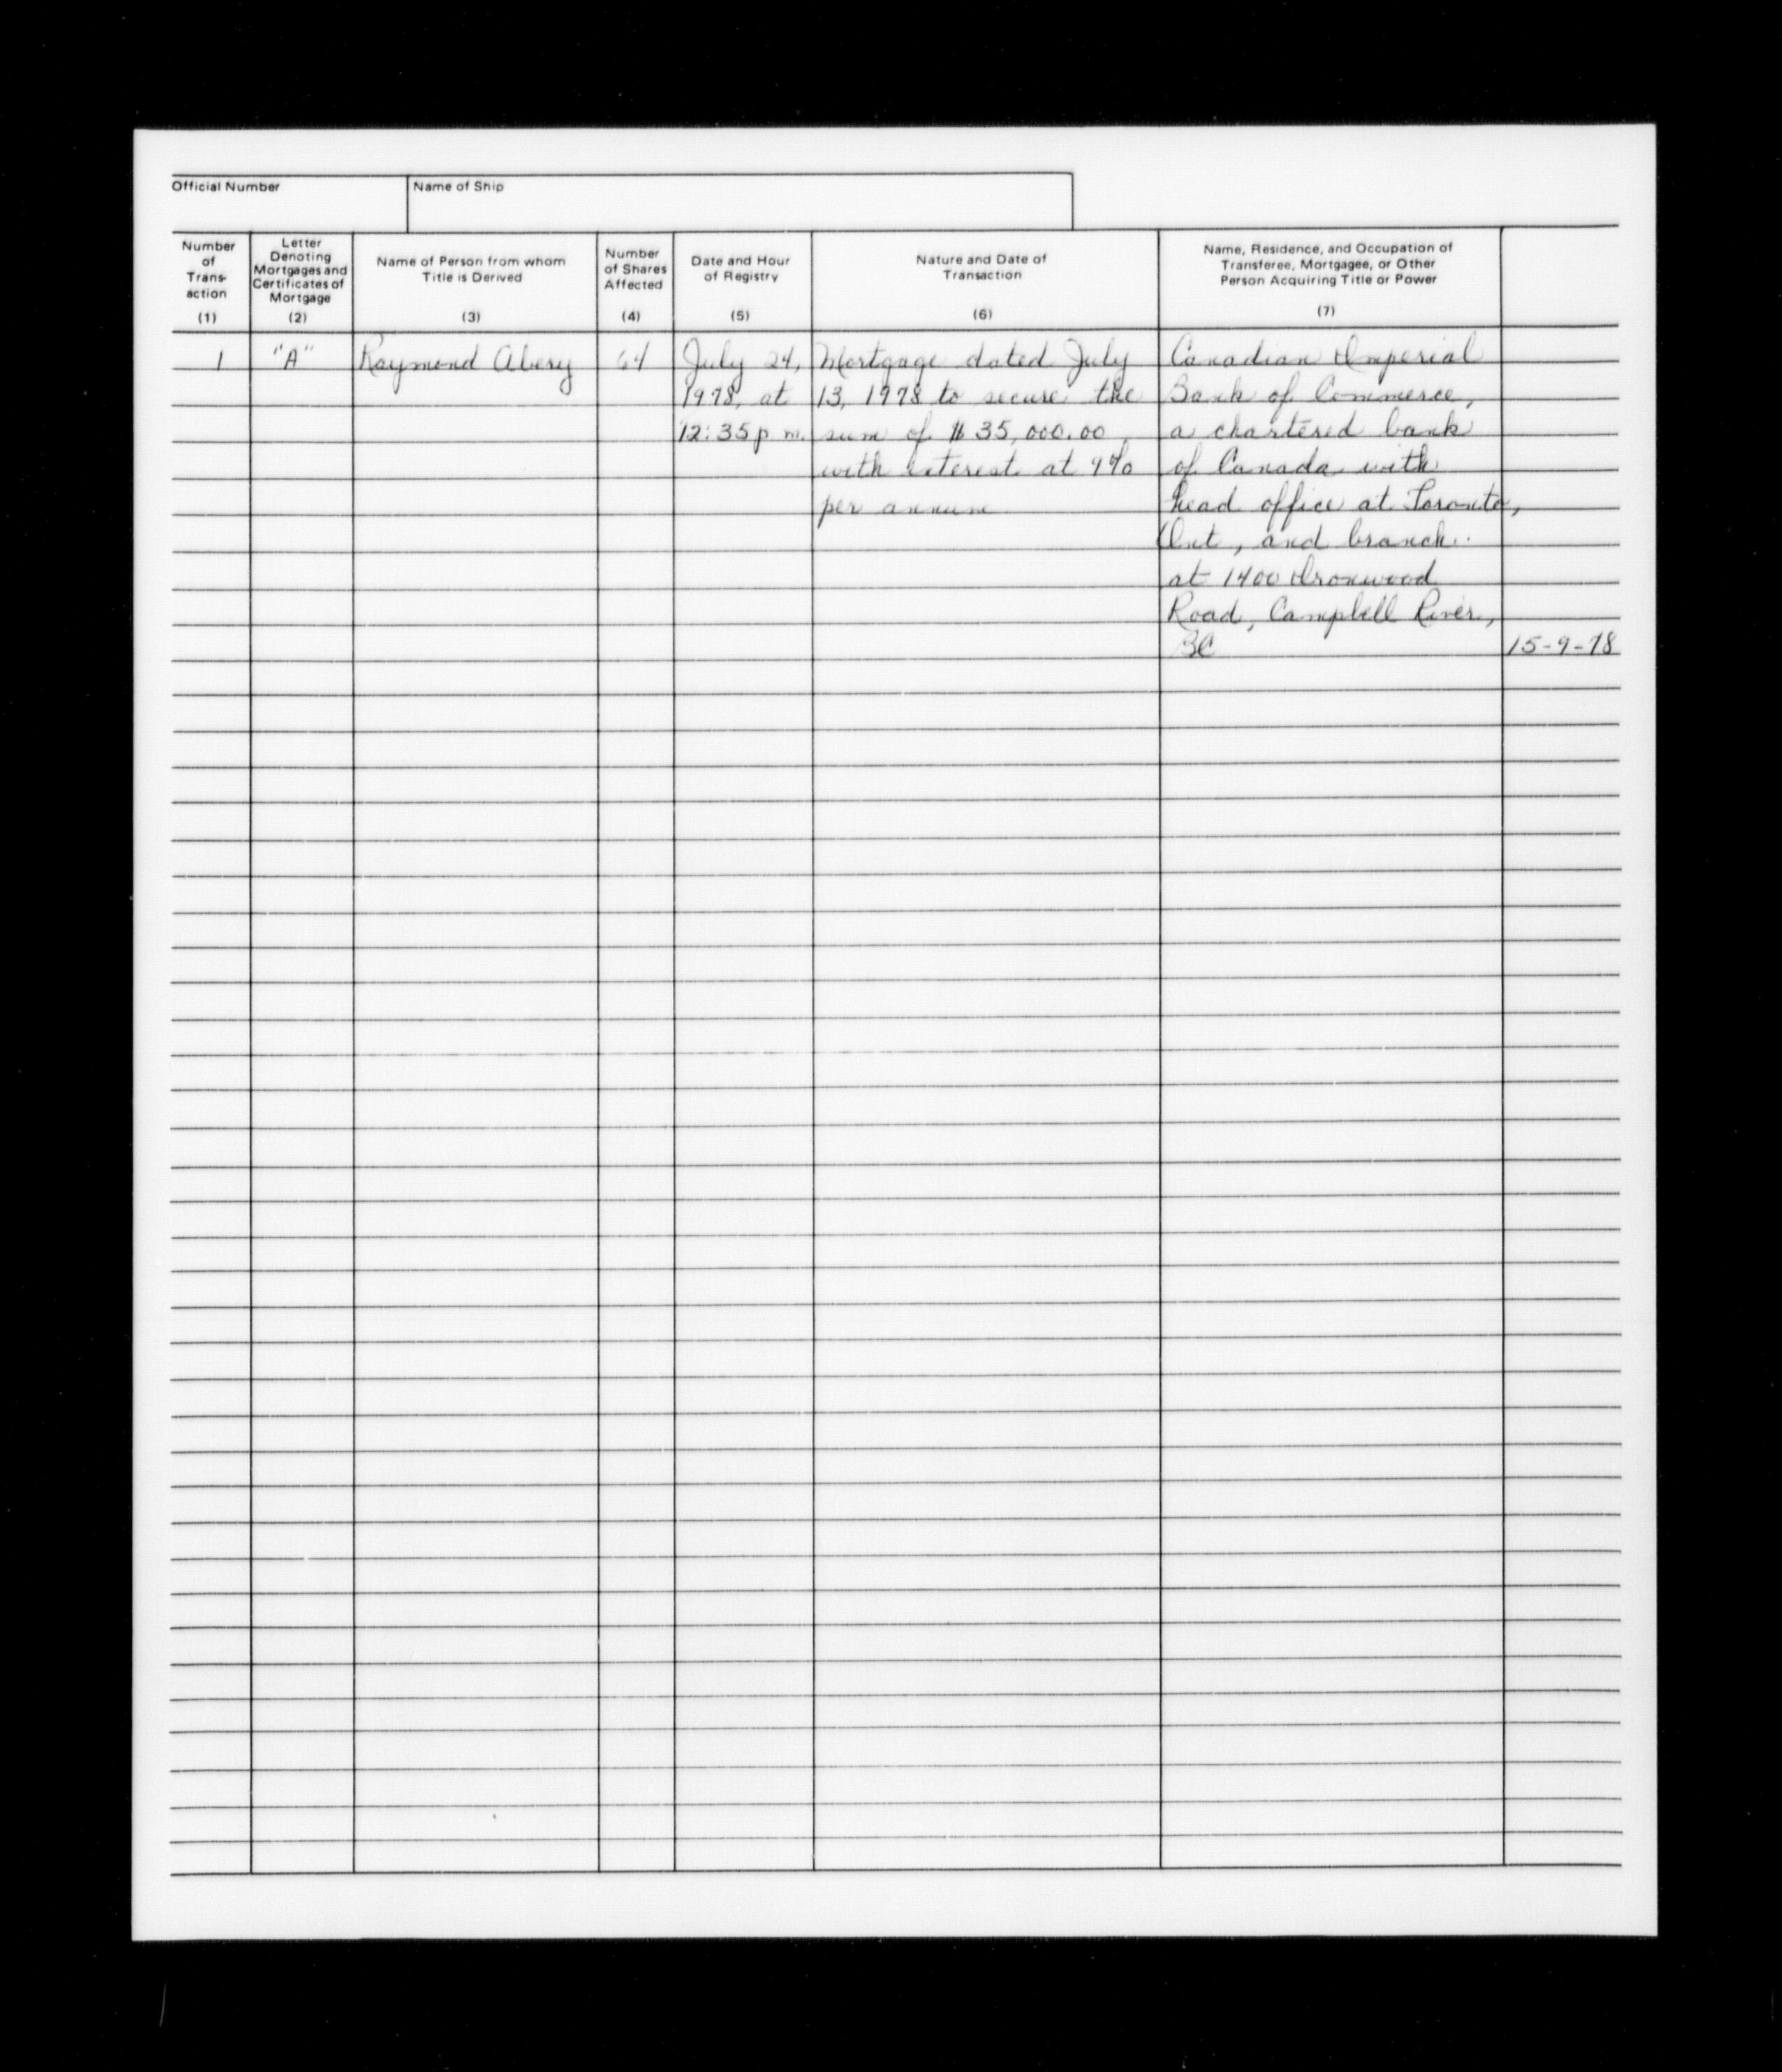 Official Number
Name of Ship
Number
of
Trans-
action
(1)
Letter
Denoting
Mortgages and
Certificates of
Mortgage
(2)
Name of Person from whom
Title is Derived
(3)
Number
of Shares
Affected
(4)
Date and Hour
of Registry
(5)
Nature and Date of
Transaction
(6)
Name, Residence, and Occupation of
Transferee, Mortgagee, or Other
Person Acquiring Title or Power
(7)
1
"A"
Raymond Abery
64
July 24,
1978, at
12:35 p m.
Mortgage dated July
13, 1978 to secure the
sum of $ 35,000.00
with interest at 9%
per annum
Canadian Imperial
Bank of Commerce,
a chartered bank
of Canada with
head office at Toronto,
Ont, and branch
at 1400 Ironwood
Road, Campbell River,
BC
15-9-78